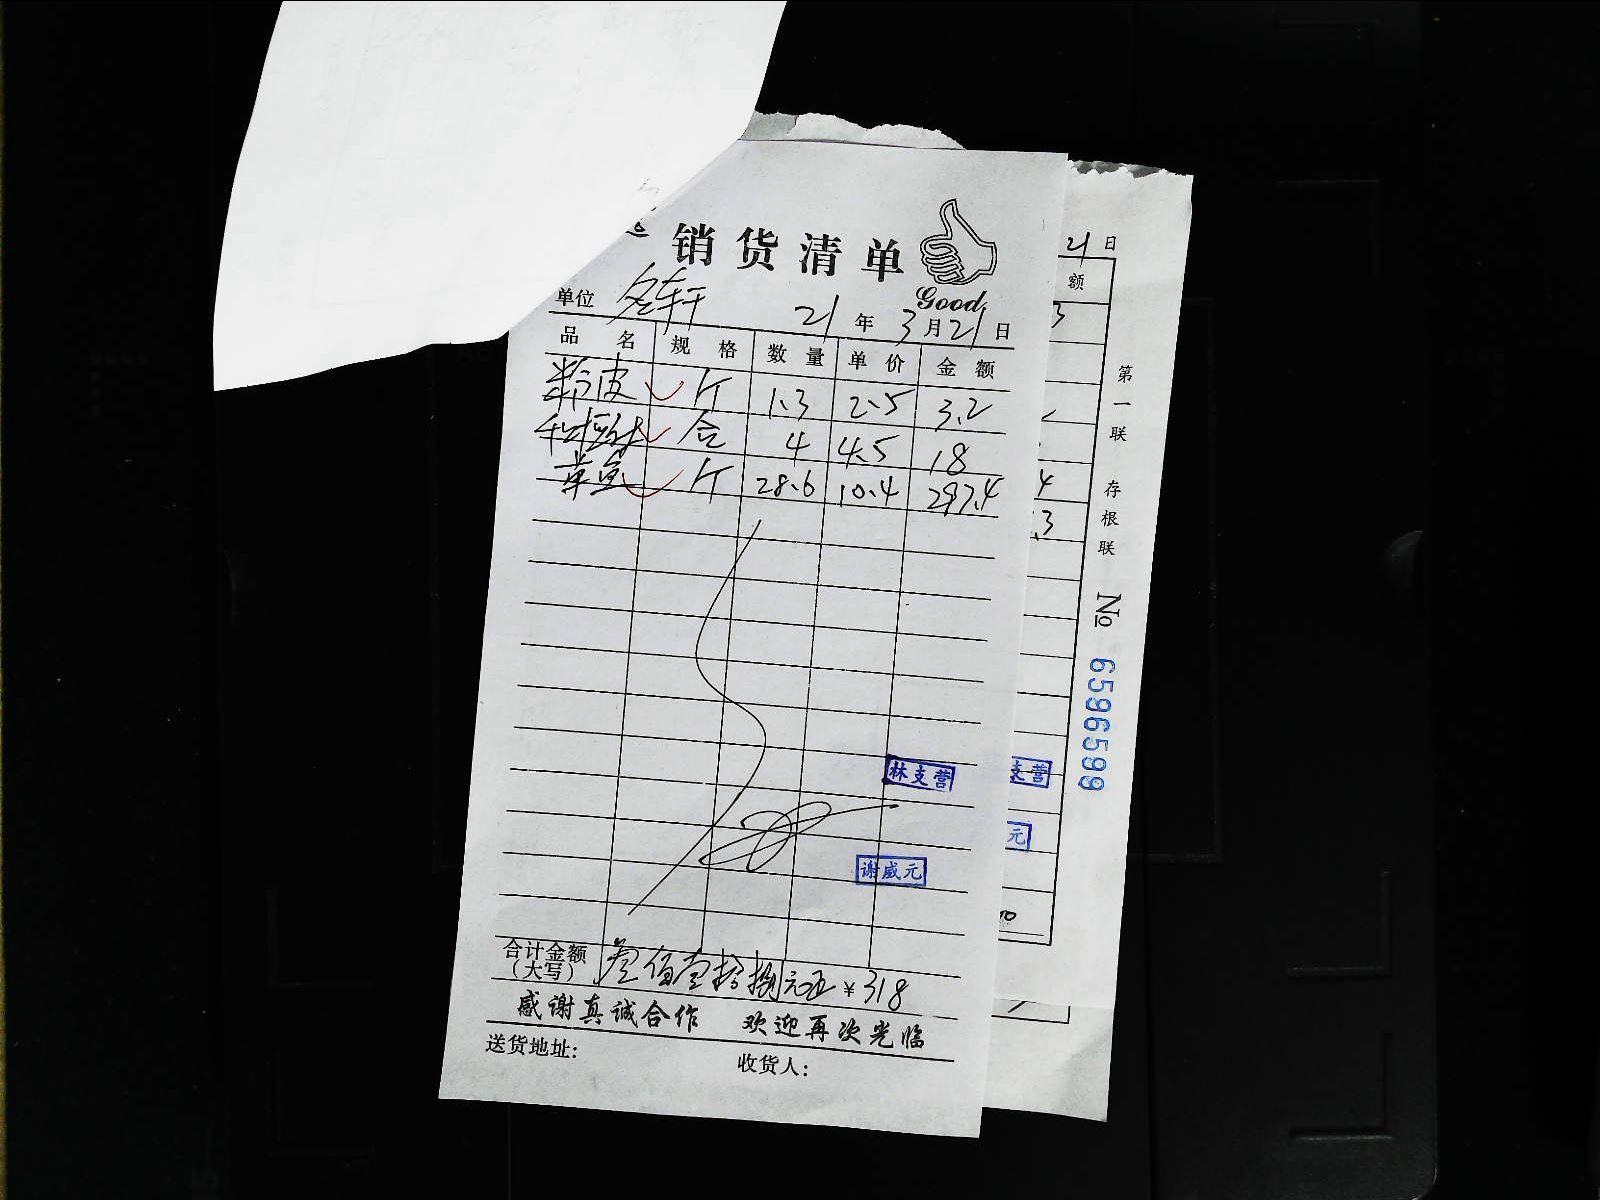 销货清单
Good
单位 名轩 21年3月21日
品名 规格 数量 单价 金额
粉皮 斤 1.3 2.5 3.2
合 4 4.5 18
草鱼 斤 28.6 10.4 297.4
林支营
谢威元
合计金额(大写) 叁佰壹拾捌元正 ¥318
感谢真诚合作 欢迎再次光临
送货地址: 收货人:
21日
额
3
4
.3
支营
元
00
第一联 存根联 No 6596599